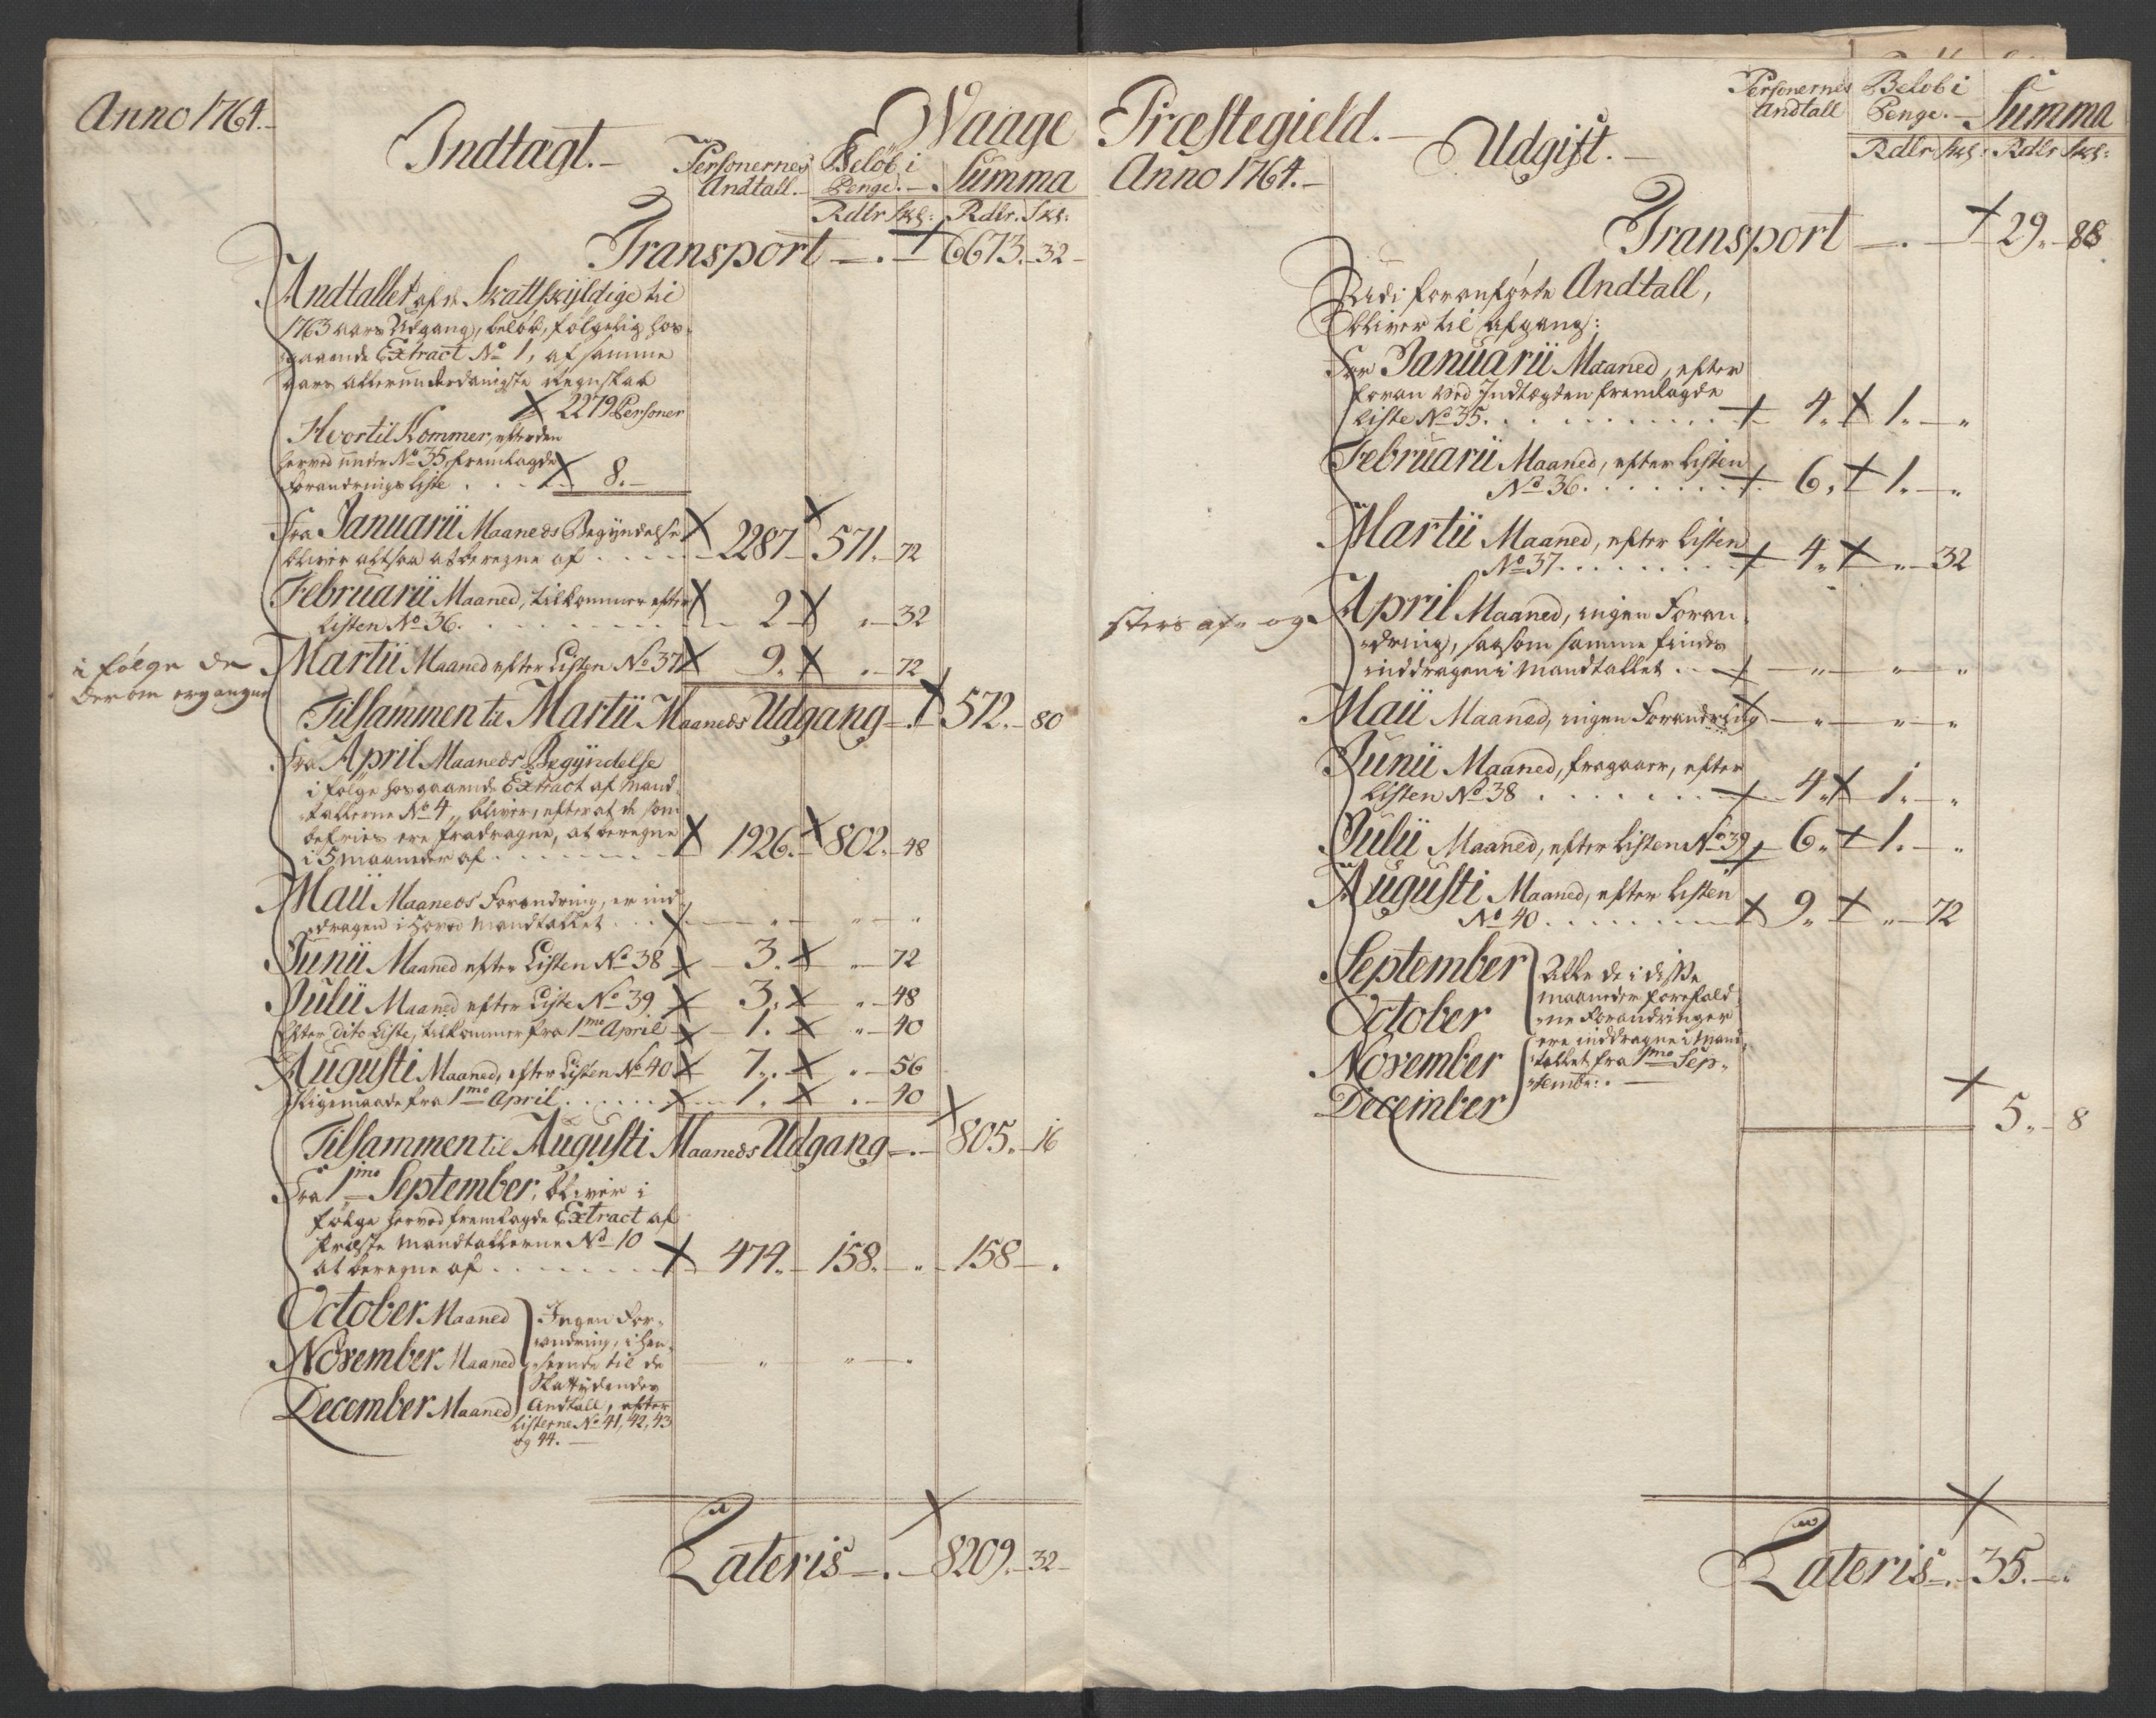 Anno 1764.
Indtægt.
Waage
Personernes Andtall.
Beløb i Penge.
Summa
Rdlr Skl: Rdlr. Skl:
Transport 6673. 32
Andtallet af de Skattskÿldige til
1763 aars Udgang, beløb, følgelig hos-
gaaende Extract No 1, af samme
aars allerunderdanigste Regnskab
2279 Personer
Hvortil Kommer, efter den
herved under No 35, fremlagde
forandrings Liste 8.
Fra Januarii Maaneds Begÿndelse
bliver altsaa at beregne af 2287 571. 72
Februarii Maaned, tilkommer efter
Listen No 36. 2 „ 32
i følge de
derom ergangne
Martii Maaned efter Listen No 37 9. „ 72
Tilsammen til Martii Maaneds Udgang 572. 80
Fra April Maaneds Begÿndelse
i følge hosgaaende Extract af Mand-
tallerne No 4, bliver, efter at de som
befries ere fradragne, at beregne
i 5 maaneder af 1926. 802. 48
Maii Maaneds Forandring, er ind-
dragen i Hoved Mandtallet „ „ „
Junii Maaned efter Listen No 38 3. „ 72
Julii Maaned efter Liste No 39. 3. „ 48
Efter Dito Liste, tilkommer fra 1mo April 1. „ 40
Augusti Maaned, efter Listen No 40 7. „ 56
Ligemaade fra 1mo April 1. „ 40
Tilsammen til Augusti Maaneds Udgang 805. 16
Fra 1mo September, bliver i
følge herved fremlagde Extract af
Mandtallerne No 10
at beregne af 474. 158. „ 158 „
October Maaned
November Maaned
December Maaned
Ingen For-
andring, i hen-
seende til de
Skattÿdendes
Andtall, efter
Listerne No 41, 42, 43
og 44.
„ „ „
Lateris 8209. 32
Præstegield.
Anno 1764.
Udgift.
Personernes Andtall
Beløb i Penge.
Summa
Rdlr Skl: Rdlr Skl:
Transport 29. 88
Udi foranførte Andtall,
bliver til afgang:
For Januarii Maaned, efter
foran ved Indtægten fremlagde
Liste No 35. 4. 1. „
Februarii Maaned, efter Listen
No 36. 6. 1. „
Martii Maaned, efter Listen
No 37. 4. „ 32
sters af- og
April Maaned, ingen Foran-
dring, saasom samme findes
inddragen i Mandtallet „ „ „
Maii Maaned, ingen Forandring „ „ „
Junii Maaned, fragaaer, efter
Listen No 38 4. 1. „
Julii Maaned, efter Listen No 39 6. 1. „
Augusti Maaned, efter Listen
No 40 9. „ 72
September
October
November
December
Alle de i disse
maaneder forefald-
ne Forandringer
ere inddragne i Mand-
tallet fra 1mo Sep-
tembr:
5. 8
Lateris 35. „